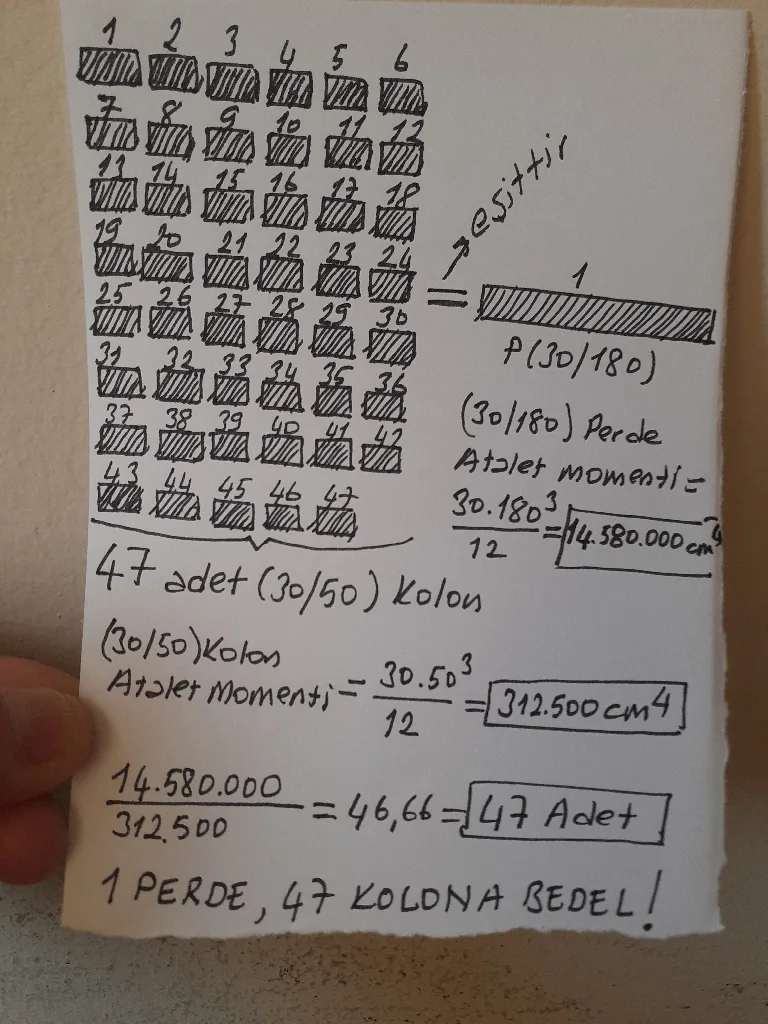 1 2 3 4 5 6
7 8 9 10 11 12
13 14 15 16 17 18
19 20 21 22 23 24
25 26 27 28 29 30
31 32 33 34 35 36
37 38 39 40 41 42
43 44 45 46 47
47 adet (30/50) Kolon
= eşittir
1
P(30/180)
(30/180) Perde
Atalet momenti =
30.180³/12 = 14.580.000 cm⁴
(30/50) Kolon
Atalet Momenti = 30.50³/12 = 312.500 cm⁴
14.580.000/312.500 = 46,66 = 47 Adet
1 PERDE, 47 KOLONA BEDEL!